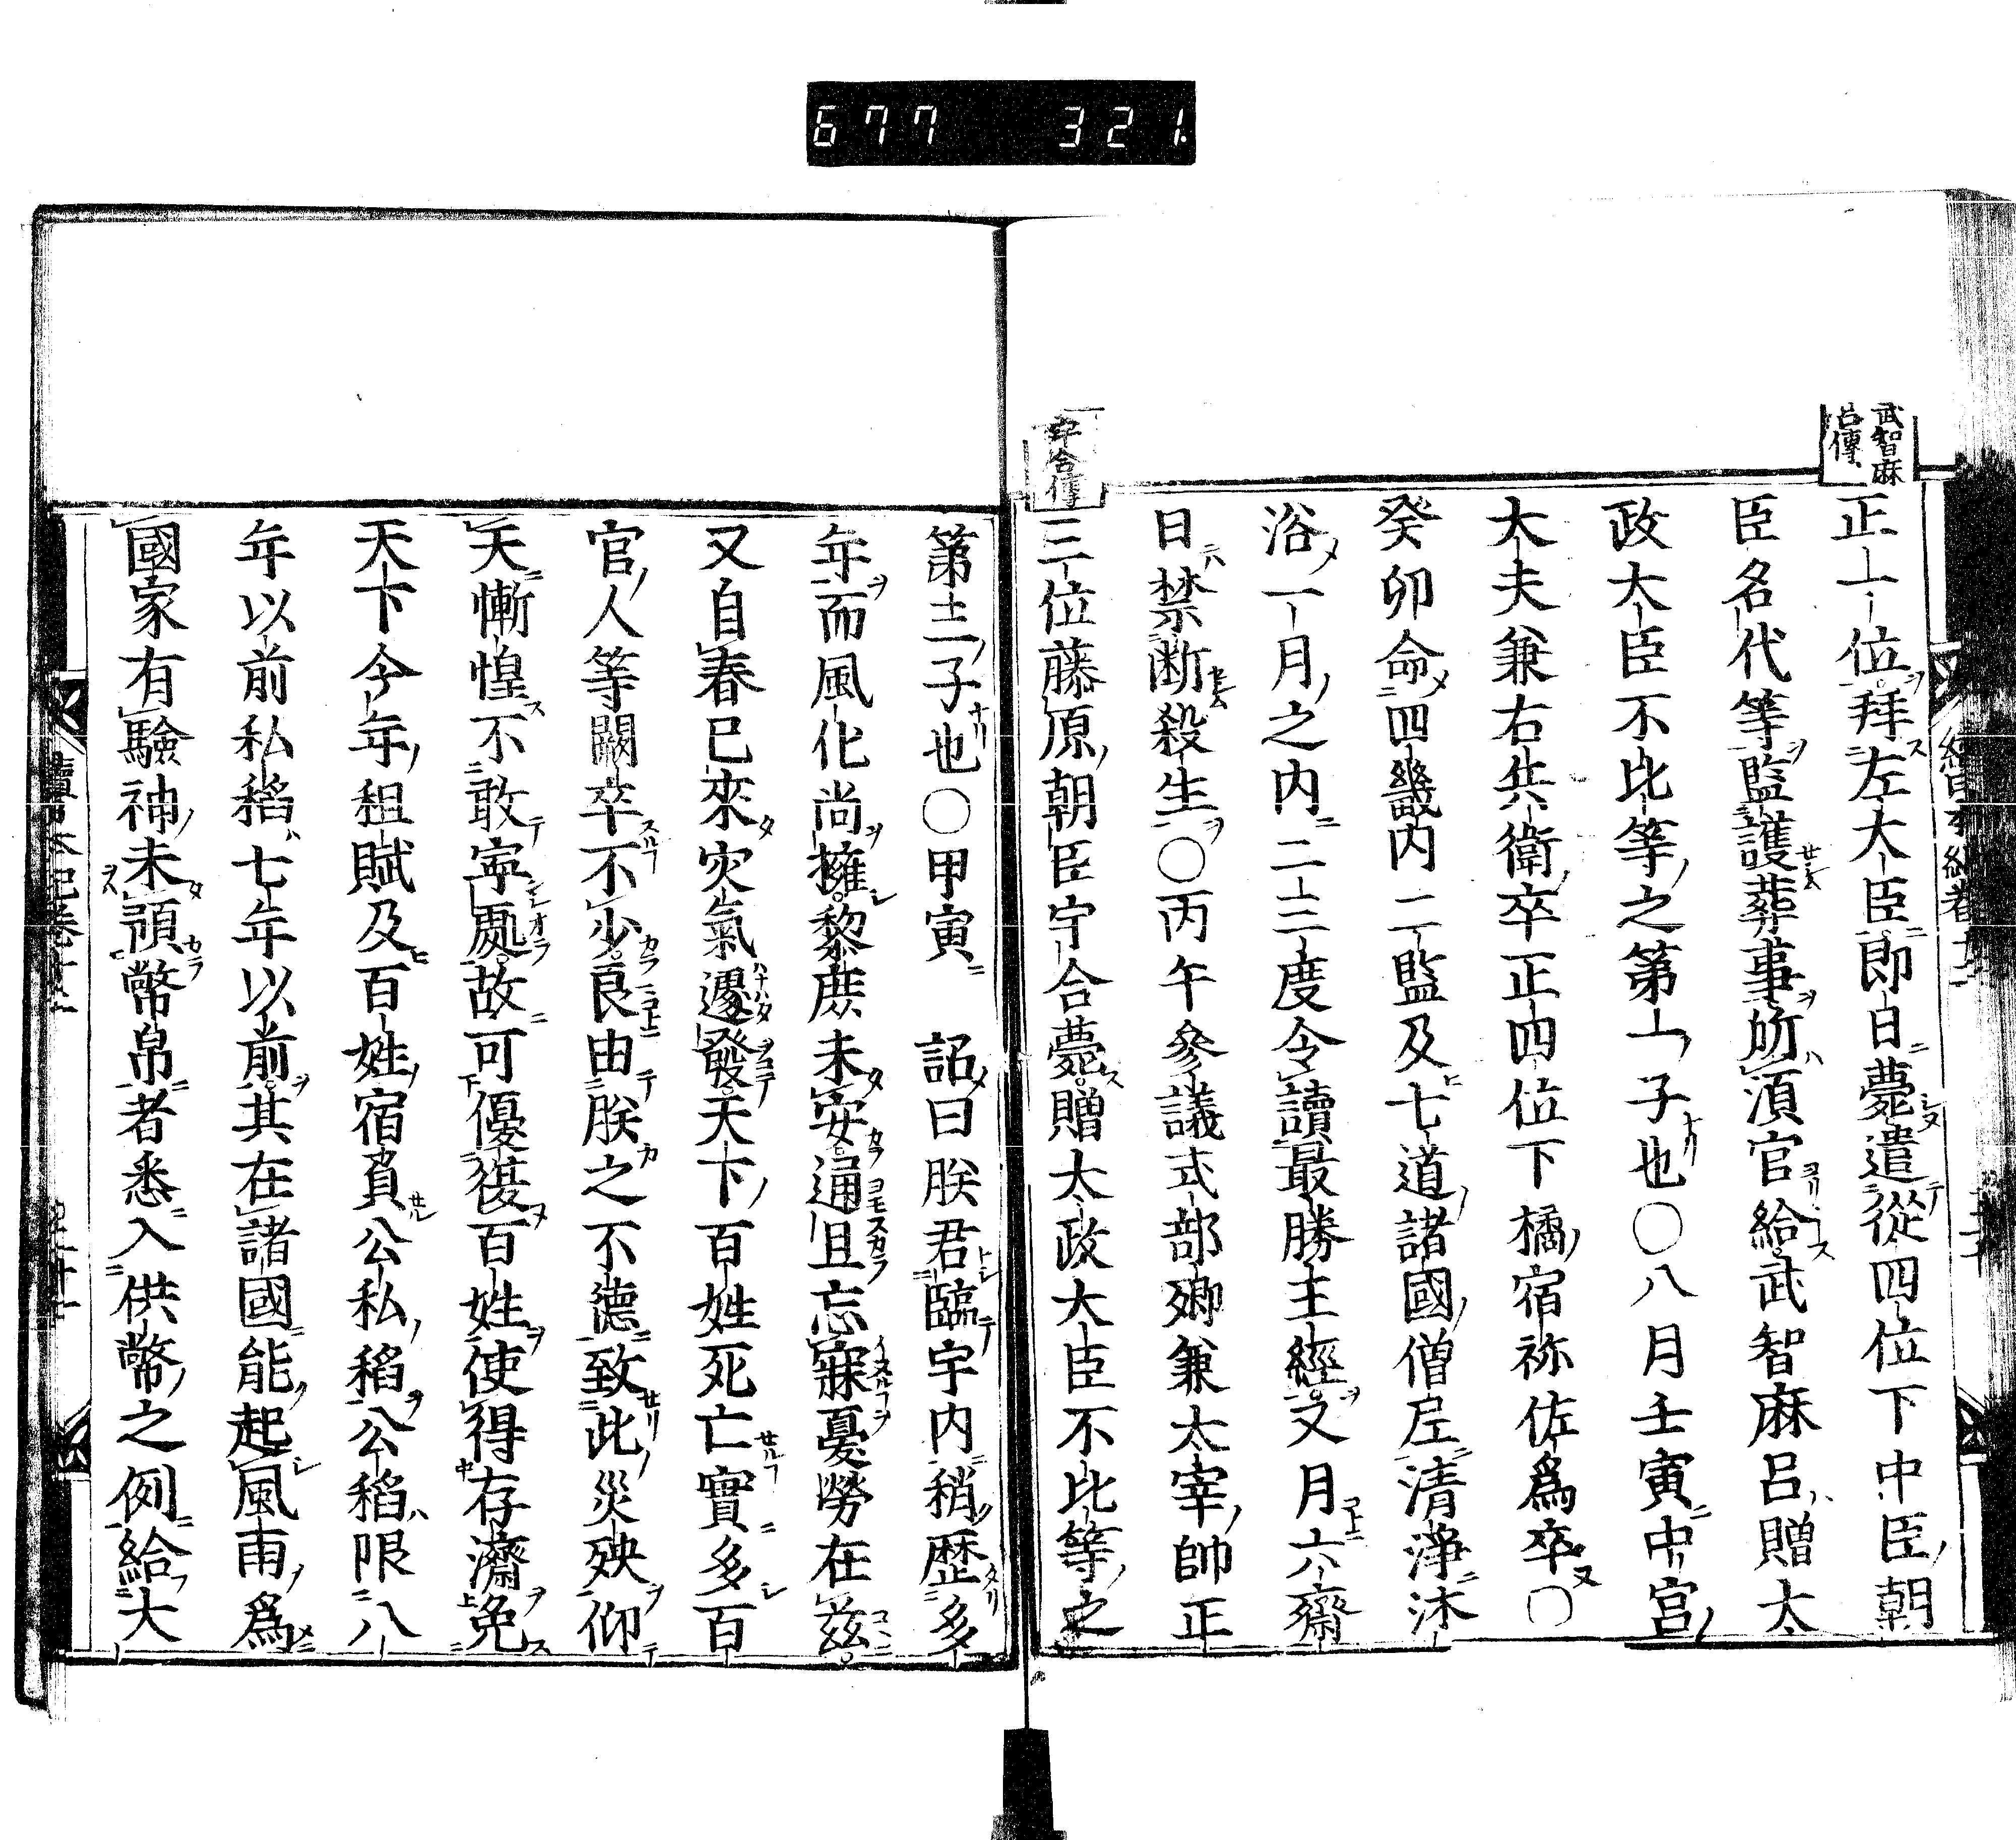 677 321
武智麻
呂傳
正一位拜左大臣即日薨遣從四位下中臣朝
臣名代等監護葬事所須官給武智麻呂贈太
政大臣不比等之第一子也〇八月壬寅中宮
大夫兼右兵衛卒正四位下橘宿祢佐為卒〇
癸卯命四畿内二監及七道諸國僧尼清淨沐
浴一月之内二三度令讀最勝王經又月六齋
日禁断殺生〇丙午參議式部卿兼太宰帥正
宇合傳
三位藤原朝臣宇合薨贈太政大臣不比等之
第三子也〇甲寅 詔曰朕君臨宇内稍歴多
年而風化尚擁黎庶未安通且忘寐憂勞在茲
又自春已來灾氣遽發天下百姓死亡實多百
官人等闕卒不少良由朕之不德致此災殃仰
天慚惶不敢寧處故可優復百姓使得存濟免
天下今年租賦及百姓宿負公私稻公稻限八
年以前私稻七年以前其在諸國能起風雨為
國家有驗神未預幣帛者悉入供幣之例給大